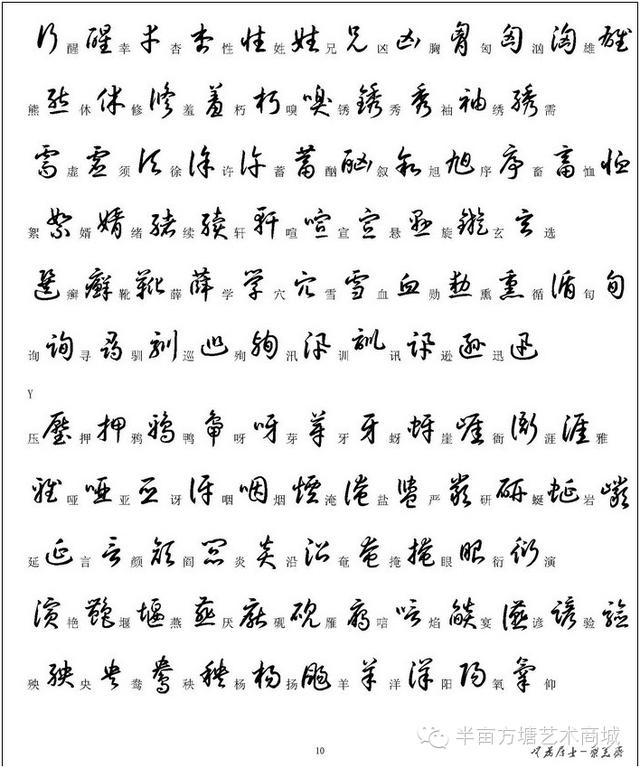 醒幸杏性姓兄凶胸匈汹雄
熊休修羞朽嗅锈秀袖绣需
虚须徐许蓄酗叙旭序畜恤
絮婿绪续轩喧宣悬旋玄选
癣靴薛学穴雪血勋熏循旬
询寻驯巡殉汛训讯逊迅
Y
压押鸦鸭呀芽牙蚜崖衙涯雅
哑亚讶咽烟淹盐严研蜒岩
延言颜阎炎沿奄掩眼衍演
艳堰燕厌砚雁唁焰宴谚验
殃央鸯秧杨扬羊洋阳氧仰
10
半亩方塘艺术商城